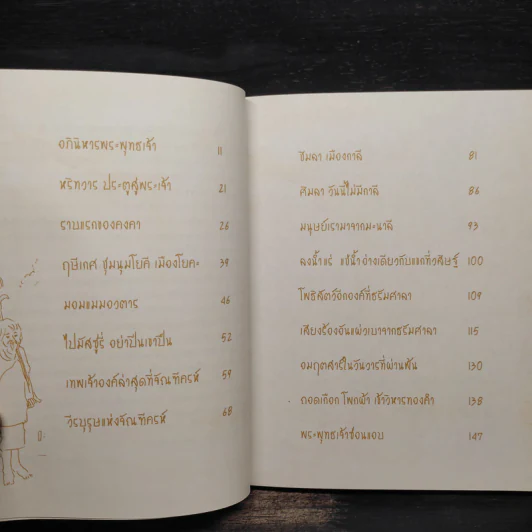 อภินิหารพระพุทธเจ้า 11
หริทวาร ประตูสู่พระเจ้า 21
ราบแรกของคงคา 28
ฤษีเกศ ชุมนุมโยคี เมืองโยคะ 39
มอมแมมอวตาร 46
ไปมัสซูรี อย่าปีนเขาปืน 52
เทพเจ้าองค์ล่าสุดที่จัณฑีครห์ 59
วีรบุรุษแห่งจัณฑีครห์ 68
ชิมลา เมืองกาลี 81
ศิมลา วันนี้ไม่มีกาลี 86
มนุษย์เรามาจากมะนาลี 93
ลงน้ำแร่ แช่น้ำอ่างเดียวกับแขกที่วศิษฐ์ 100
โพธิสัตว์อีกองค์ที่ธรัมศาลา 109
เสียงร้องอันแผ่วเบาจากธรัมศาลา 115
อมฤตสาร์ในวันวารที่ผ่านพ้น 130
ถอดเกือก โพกผ้า เข้าวิหารทองคำ 138
พระพุทธเจ้าซ่อนแอบ 147